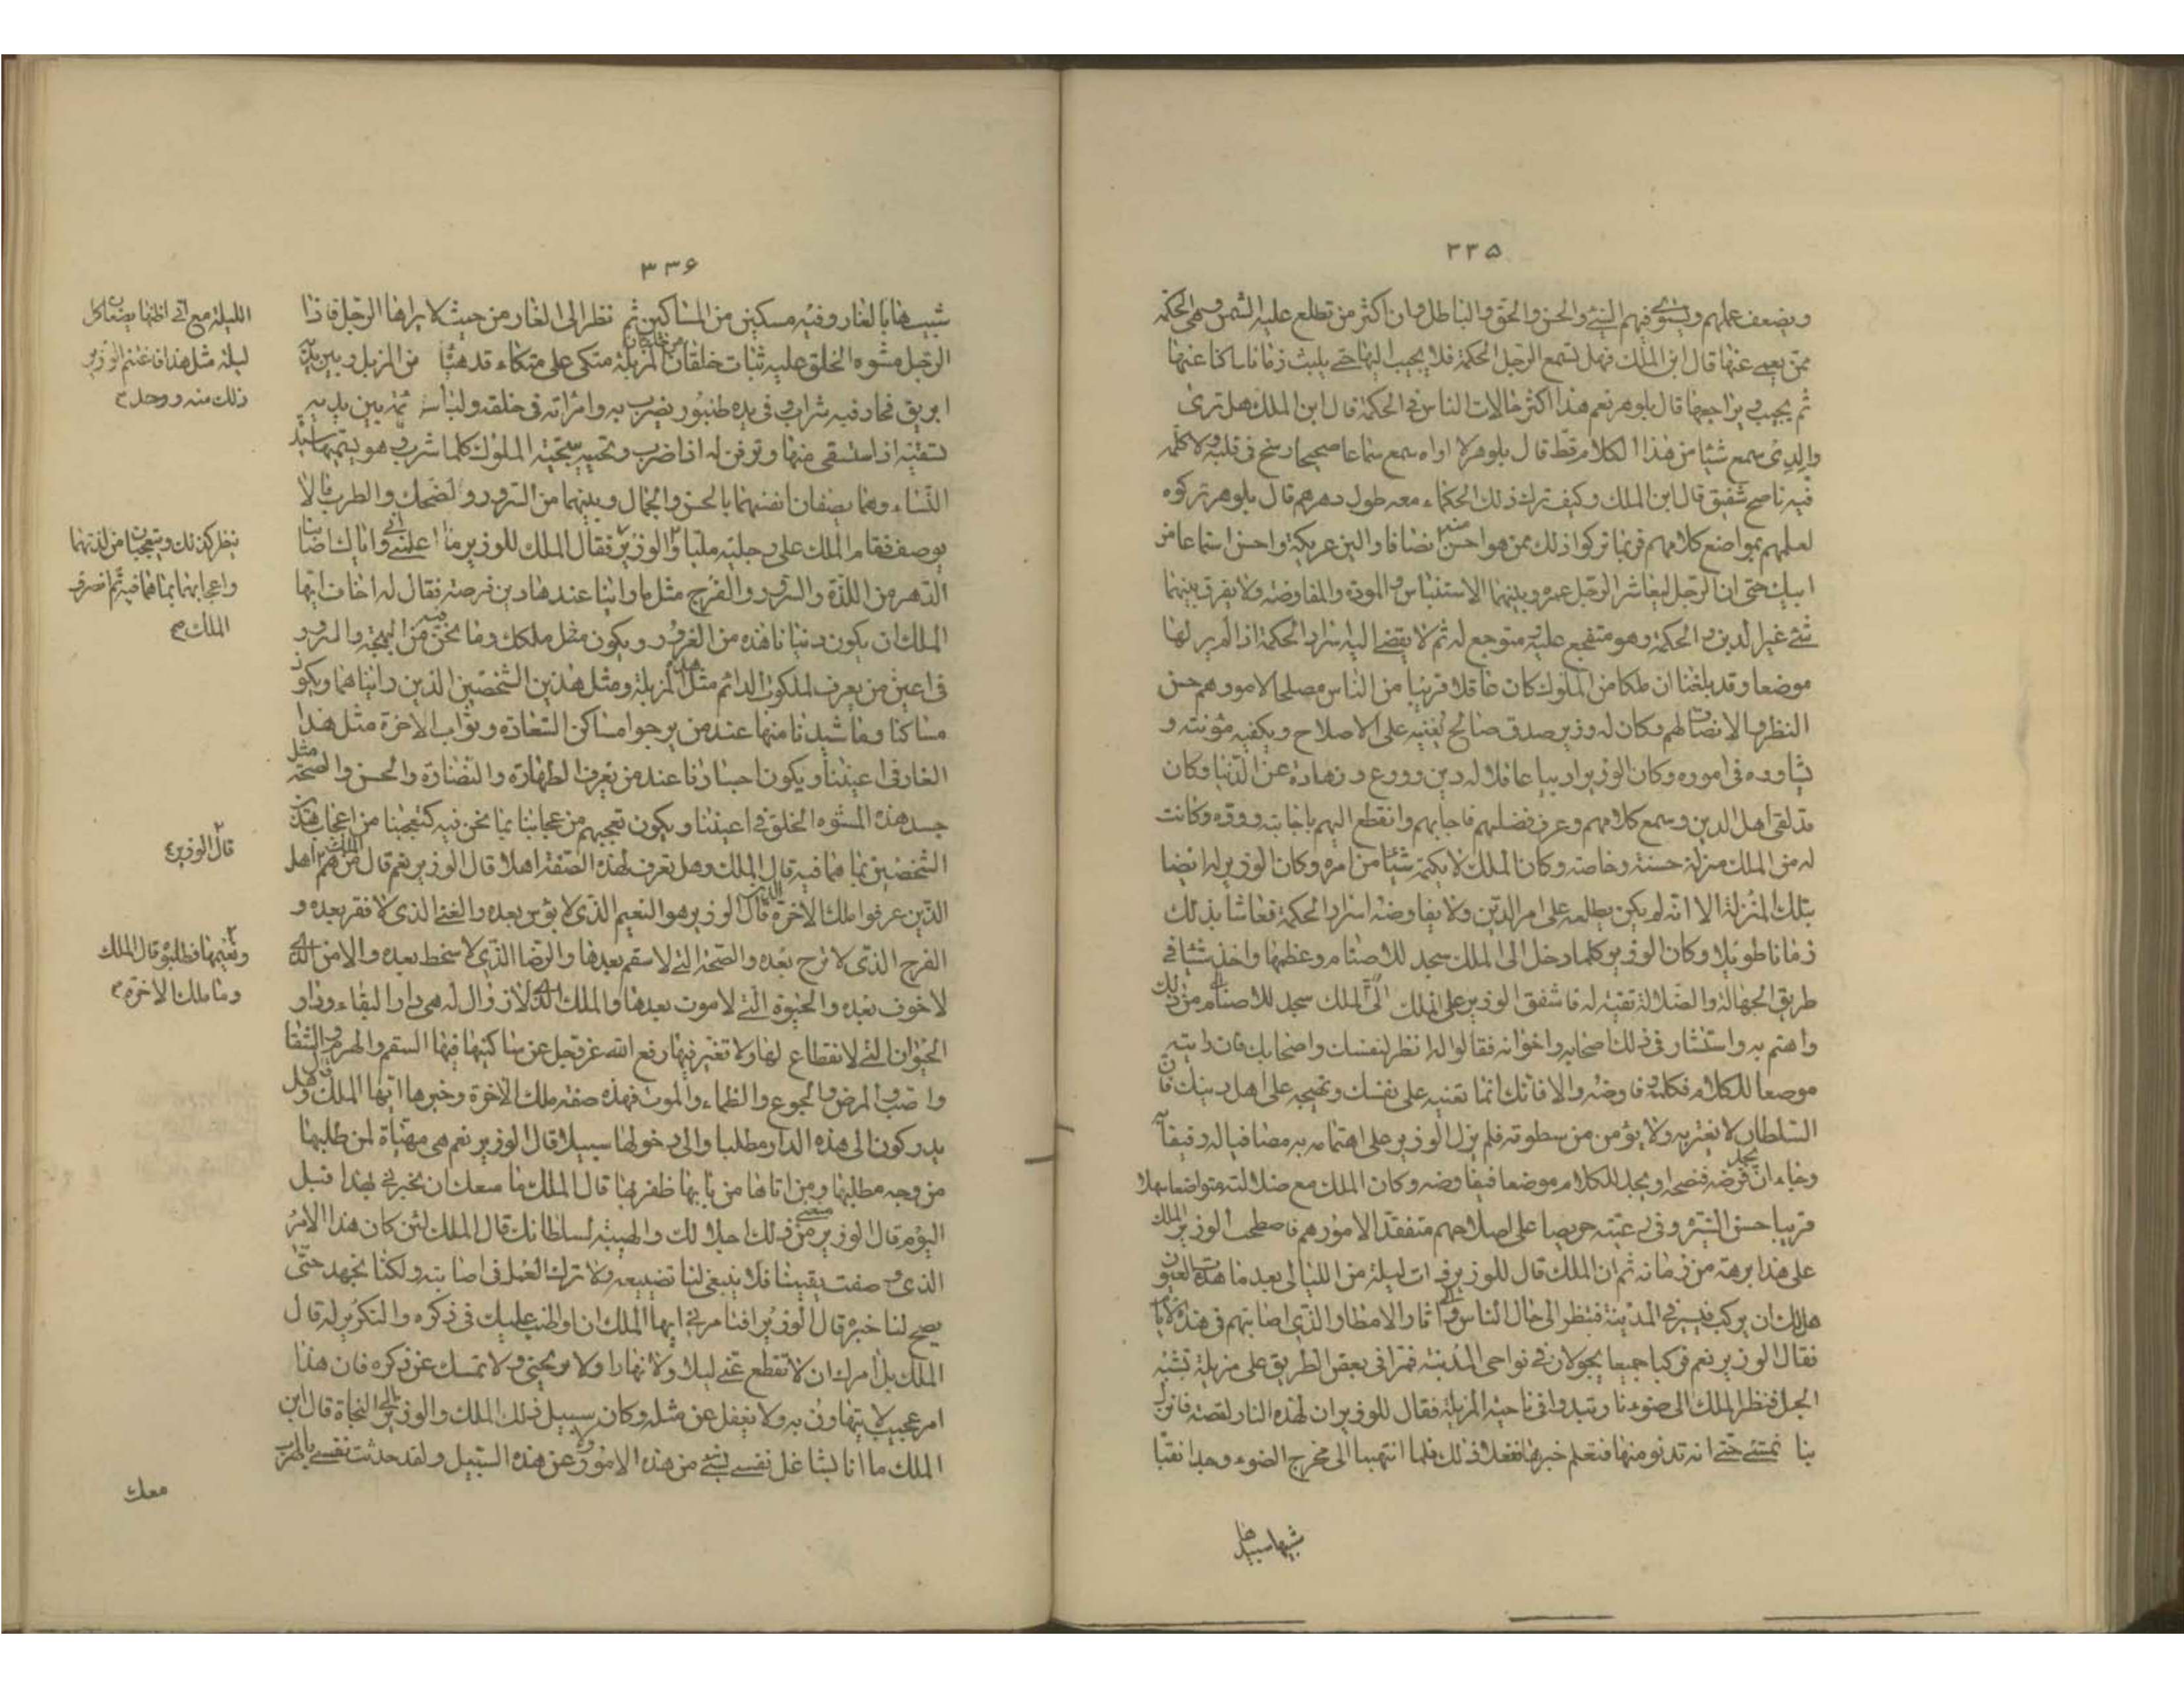 ٣٣۵
ويضعف عملهم ويستوي فيهم السئ والحسن والحق والباطل وان اكثر من تطلع عليه الشمس وهي الحكمة
ممن يعمى عنها قال ابن الملك فهل تسمع الرجل الحكمة فلا يجيب اليها حتى يلبث زمانا ناكبا عنها
ثم يجيب ويراجعها قال بلوهر نعم هذا اكثر حالات الناس في الحكمة قال ابن الملك هل ترى
والدي سمع شيئا من هذا الكلام قط قال بلوهر لا اراه سمع سماعا صحيحا رسخ في قلبه ولا كلمه
فيه ناصح شفيق قال ابن الملك وكيف ترك ذلك الحكماء معه طول دهرهم قال بلوهر تركوه
لعلمهم بمواضع كلامهم فربما تركوا ذلك ممن هو احسن منه انصافا والين عريكة واحسن استماعا من
ابيك حتى ان الرجل ليعاشر الرجل عمره وبينهما الاستئناس والمودة والمفاوضة ولا يفرق بينهما
شئ غير الدين والحكمة وهو متفجع عليه متوجع له ثم لا يفضي اليه اسرار الحكمة اذا لم ير لها
موضعا وقد بلغنا ان ملكا من الملوك كان عاقلا قريبا من الناس مصلحا لامورهم حسن
النظر والانصاف لهم وكان له وزير صدق صالح يعينه على الاصلاح ويكفيه مؤنته و
يشاوره في اموره وكان الوزير اديبا عاقلا له دين وورع ونزهادة عن الدنيا وكان
قد لقى اهل الدين وسمع كلامهم وعرف فضلهم فاجابهم وانقطع اليهم باخائه ووده وكانت
له من الملك منزلة حسنة وخاصة وكان الملك لا يكتمه شيئا من امره وكان الوزير له ايضا
بتلك المنزلة الا انه لم يكن يطلعه على امر الدين ولا يفاوضه اسرار الحكمة فعاشا بذلك
زمانا طويلا وكان الوزير كلما دخل الى الملك سجد للاصنام وعظمها واخذ شيئا في
طريق الجهالة والضلالة تقية له فاشفق الوزير على الملك الى الملك سجد للاصنام من ذلك
واهتم به واستشار في ذلك اصحابه واخوانه فقالوا له انظر لنفسك واصحابك فان رايته
موضعا للكلام فكلمه وفاوضه والا فانك انما تعينه على نفسك وتهيجه على اهل دينك فان
السلطان لا يغتر به ولا يؤمن من سطوته فلم يزل الوزير على اهتمامه به مصافيا له رفيقا به
رجاء ان يجد فرصة فينصحه او يجد للكلام موضعا فيفاوضه وكان الملك مع ضلالته متواضعا سهلا
قريبا حسن السيرة في رعيته حريصا على اصلاحهم متفقدا لامورهم فاصطحب الوزير الملك
على هذا برهة من زمانه ثم ان الملك قال للوزير ذات ليلة من الليالي بعد ما هدأت العيون
هل لك ان يركب فنسير في المدينة فننظر الى حال الناس و اثار الامطار التي اصابتهم في هذه الايام
فقال الوزير نعم فركبا جميعا يجولان في نواحي المدينة فمرا في بعض الطريق على مزبلة تشبه
الجبل فنظر الملك الى ضوء نار تبدوا في ناحية المزبلة فقال للوزير ان لهذه النار لقصة فانزل
بنا نمشي حتى ندنو منها فنعلم خبرها ففعلا ذلك فلما انتهيا الى مخرج الضوء وجدا نقبا
شبيها
٣٣۶
شبيها بالغار وفيه مسكين من المساكين ثم نظر الى الغار من حيث لا يراها الرجل فاذا
الرجل مشوه الخلق عليه ثياب خلقان من خلقان المزبلة متكئ على متكاء قد هيأه من الزبل وبين يديه
ابريق فخار فيه شراب وفي يده طنبور يضرب به وامراته في خلقه ولباسه قائمة بين يديه
تسقيه اذا استسقى منها وترقص له اذا ضرب وتحييه بتحية الملوك كلما شرب وهو يسميها سيدة
النساء وهما يصفان انفسهما بالحسن والجمال وبينهما من السرور والضحك والطرب ما لا
يوصف فقام الملك على رجليه مليا والوزير فقال الملك للوزير ما اعلمني واياك اصابنا
الدهر من اللذة والسرور والفرح مثل ما راينا عند هذين فرصة فقال له اخاف ايها
الملك ان يكون دنيانا هذه من الغرور ويكون مثل ملكك وما نحن فيه من البهجة والسرور
في اعين من يعرف الملكوت الدائم مثل هذه المزبلة ومثل هذين الشخصين الذين رايناهما ويكون
مساكننا وما شيدنا منها عند من يرجوا مساكن السعادة وثواب الاخرة مثل هذا
الغار في اعيننا ويكون اجسادنا عند من يعرف الطهارة والنضارة والحسن والصحة مثل
جسد هذه المشوه الخلق في اعيننا ويكون تعجبهم من عجابنا بما نحن فيه كتعجبنا من اعجاب هذين
الشخصين بما هما فيه قال الملك وهل تعرف لهذه الصفة اهلا قال الوزير نعم قال الملك من هم اهل
الدين عرفوا ملك الاخرة قال الوزير هو النعيم الذي لا بؤس بعده والغنى الذي لا فقر بعده و
الفرح الذي لا ترح بعده والصحة التي لا سقم بعدها والرضا الذي لا سخط بعده والامن الذي
لا خوف بعده والحيوة التي لا موت بعدها والملك الذي لا زوال له هي دار البقاء ودار
الحيوان التي لا انقطاع لها ولا تغير فيها رفع الله عز وجل عن ساكنيها فيها السقم والهرم والشقا
والنصب والمرض والجوع والظماء والموت فهذه صفة ملك الاخرة وخبرها ايها الملك قال وهل
يدركون الى هذه الدار مطلبا والى دخولها سبيلا قال الوزير نعم هي مهيأة لمن طلبها
من وجه مطلبها ومن اتاها من بابها ظفر بها قال الملك ما منعك ان تخبرني بهذا قبل
اليوم قال الوزير منعني من ذلك اجلالك والهيبة لسلطانك قال الملك لئن كان هذا الامر
الذي وصفت يقينا فلا ينبغي لنا تضييعه ولا ترك العمل في اصابته ولكنا نجهد حتى
يصح لنا خبره قال الوزير افتامرني ايها الملك ان اواظب عليك في ذكره والتكرير له قال
الملك بل امرك ان لا تقطع عني ليلا ولا نهارا ولا تريحني ولا تمسك عن ذكره فان هذا
امر عجيب لا يتهاون به ولا يغفل عن مثله وكان سبيل ذلك الملك والوزير الى النجاة قال ابن
الملك ما انا بشاغل نفسي بشئ من هذه الامور عن هذه السبيل ولقد حدثت نفسي بالهرب
معك
الليلة مع اني اظنها يصنعان كل
ليلة مثل هذا فاغتنم الوزير
ذلك منه ووجد
ينظر كذلك ويتعجبان من لذتهما
واعجابهما بما هما فيه ثم انصرف
الملك
قال الوزير
ونعيمها وطلبوه قال الملك
وما ملك الاخرة